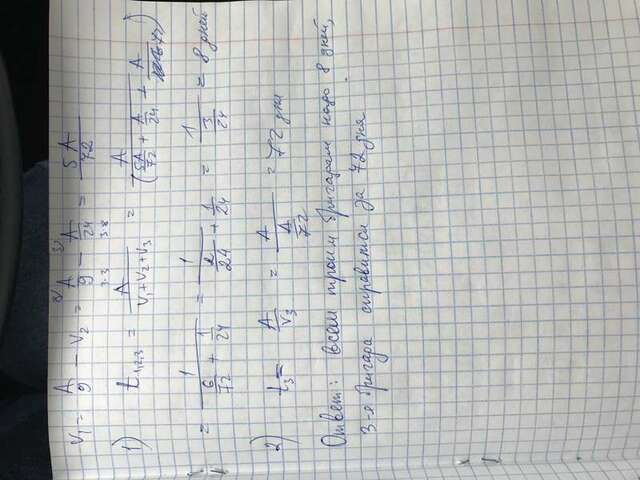 V₁ = A/9 − V₂ = A/9 − A/24 = 5A/72
1) t₁,₂,₃ = A/(V₁+V₂+V₃) = A/(5A/72 + A/24 + A/72)
= 1/(6/72 + 1/24) = 1/(2/24 + 1/24) = 1/(3/24) = 8 дней
2) t₃ = A/V₃ = A/(A/72) = 72 дня
Ответ: всем троим бригадам надо 8 дней,
3-я бригада справится за 72 дня